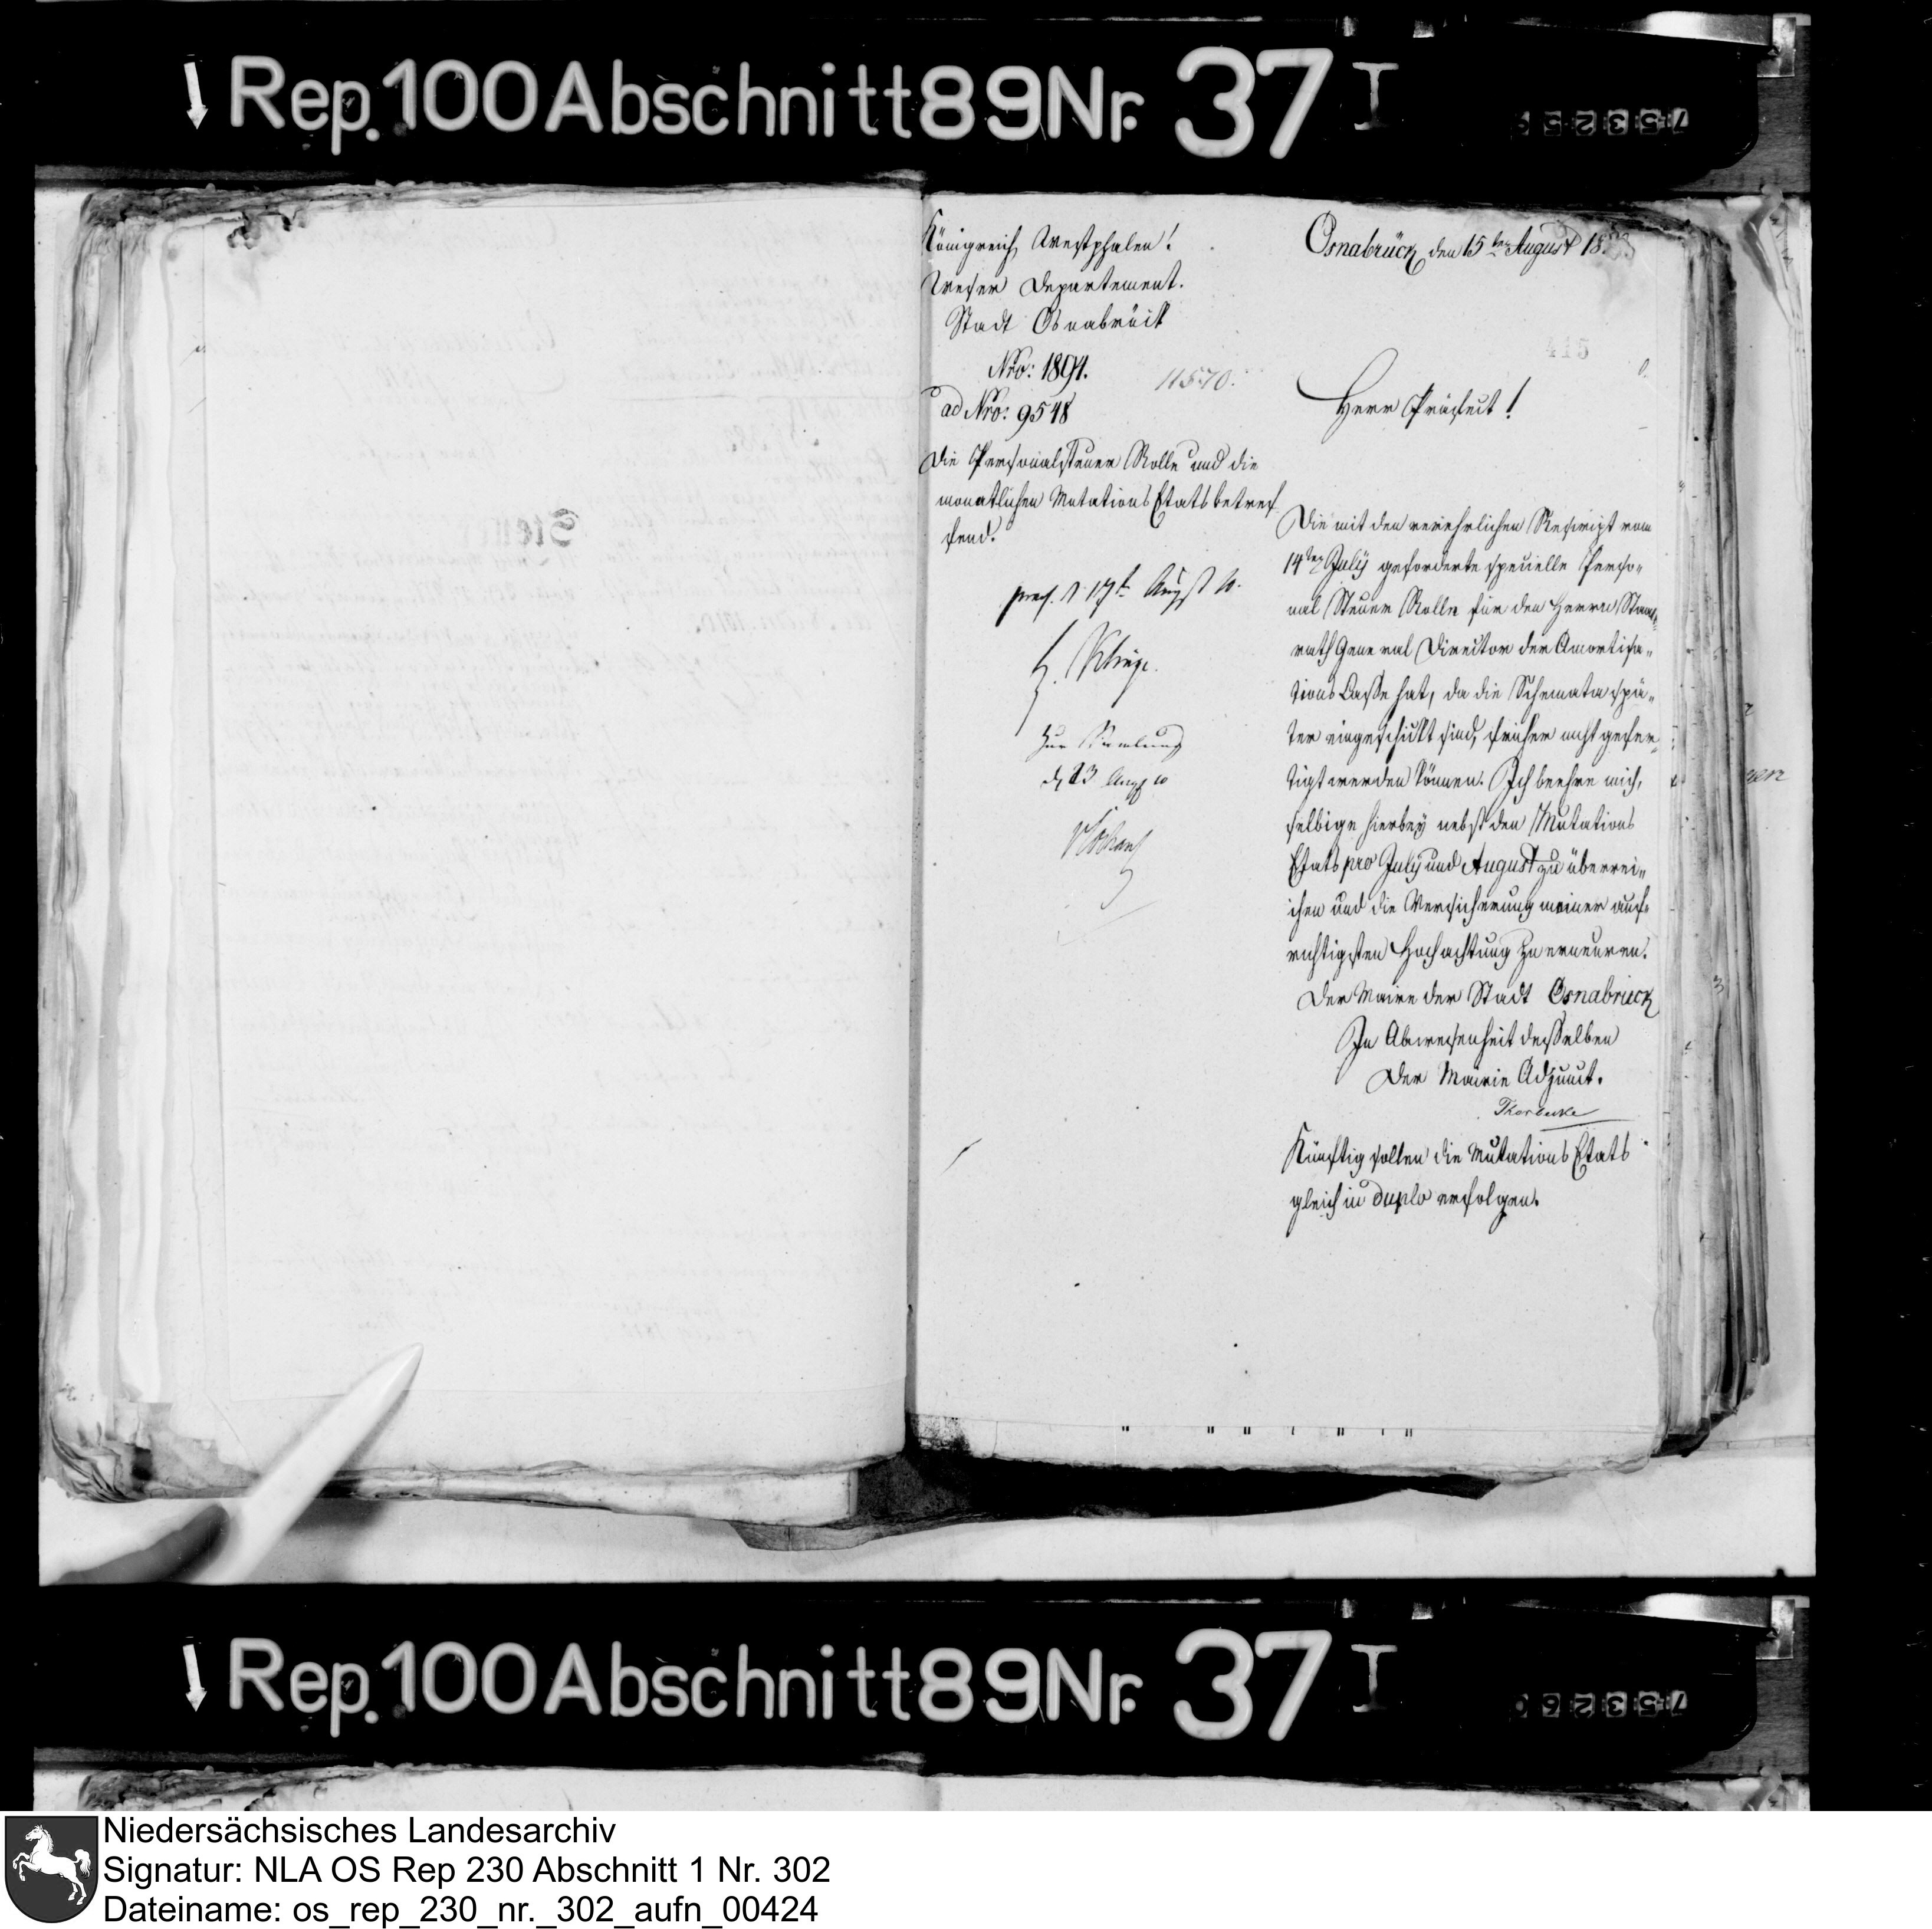 Rep. 100 Abschnitt 89 Nr. 37 I
Königreich Westphalen!
Weser Departement.
Stadt Osnabrück
Nro: 1891.
11570.
ad Nro: 9548
Die Personalsteuer Rolle und die
monatlichen Mutations Etats betref
fend.
praes. d. 17t August 10.
Zur Sammlung
d. 23 Aug 10
Osnabrück den 15ten August 18
415
Herr Präfect!
Die mit den verehrlichen Rescript vom
14ten July geforderte specielle Perso„
nal Steuer Rolle für den Herrn Staats„
rath General Director der Amortisa„
tions Casse hat, da die Schemata spä„
ter eingeschickt sind, früher nicht gefer„
tigt werden können. Ich beehre mich,
selbige hierbey nebst den Mutations
Etats pro July und August zu überrei„
chen und die Versicherung meiner auf„
richtigsten Hochachtung zu erneuren.
Der Maire der Stadt Osnabrück
In Abwesenheit desselben
Der Mairie Adjunct.
Thorbecke
Künftig sollen die Mutations Etats
gleich in duplo erfolgen.
Rep. 100 Abschnitt 89 Nr. 37 I
Niedersächsisches Landesarchiv
Signatur: NLA OS Rep 230 Abschnitt 1 Nr. 302
Dateiname: os_rep_230_nr._302_aufn_00424